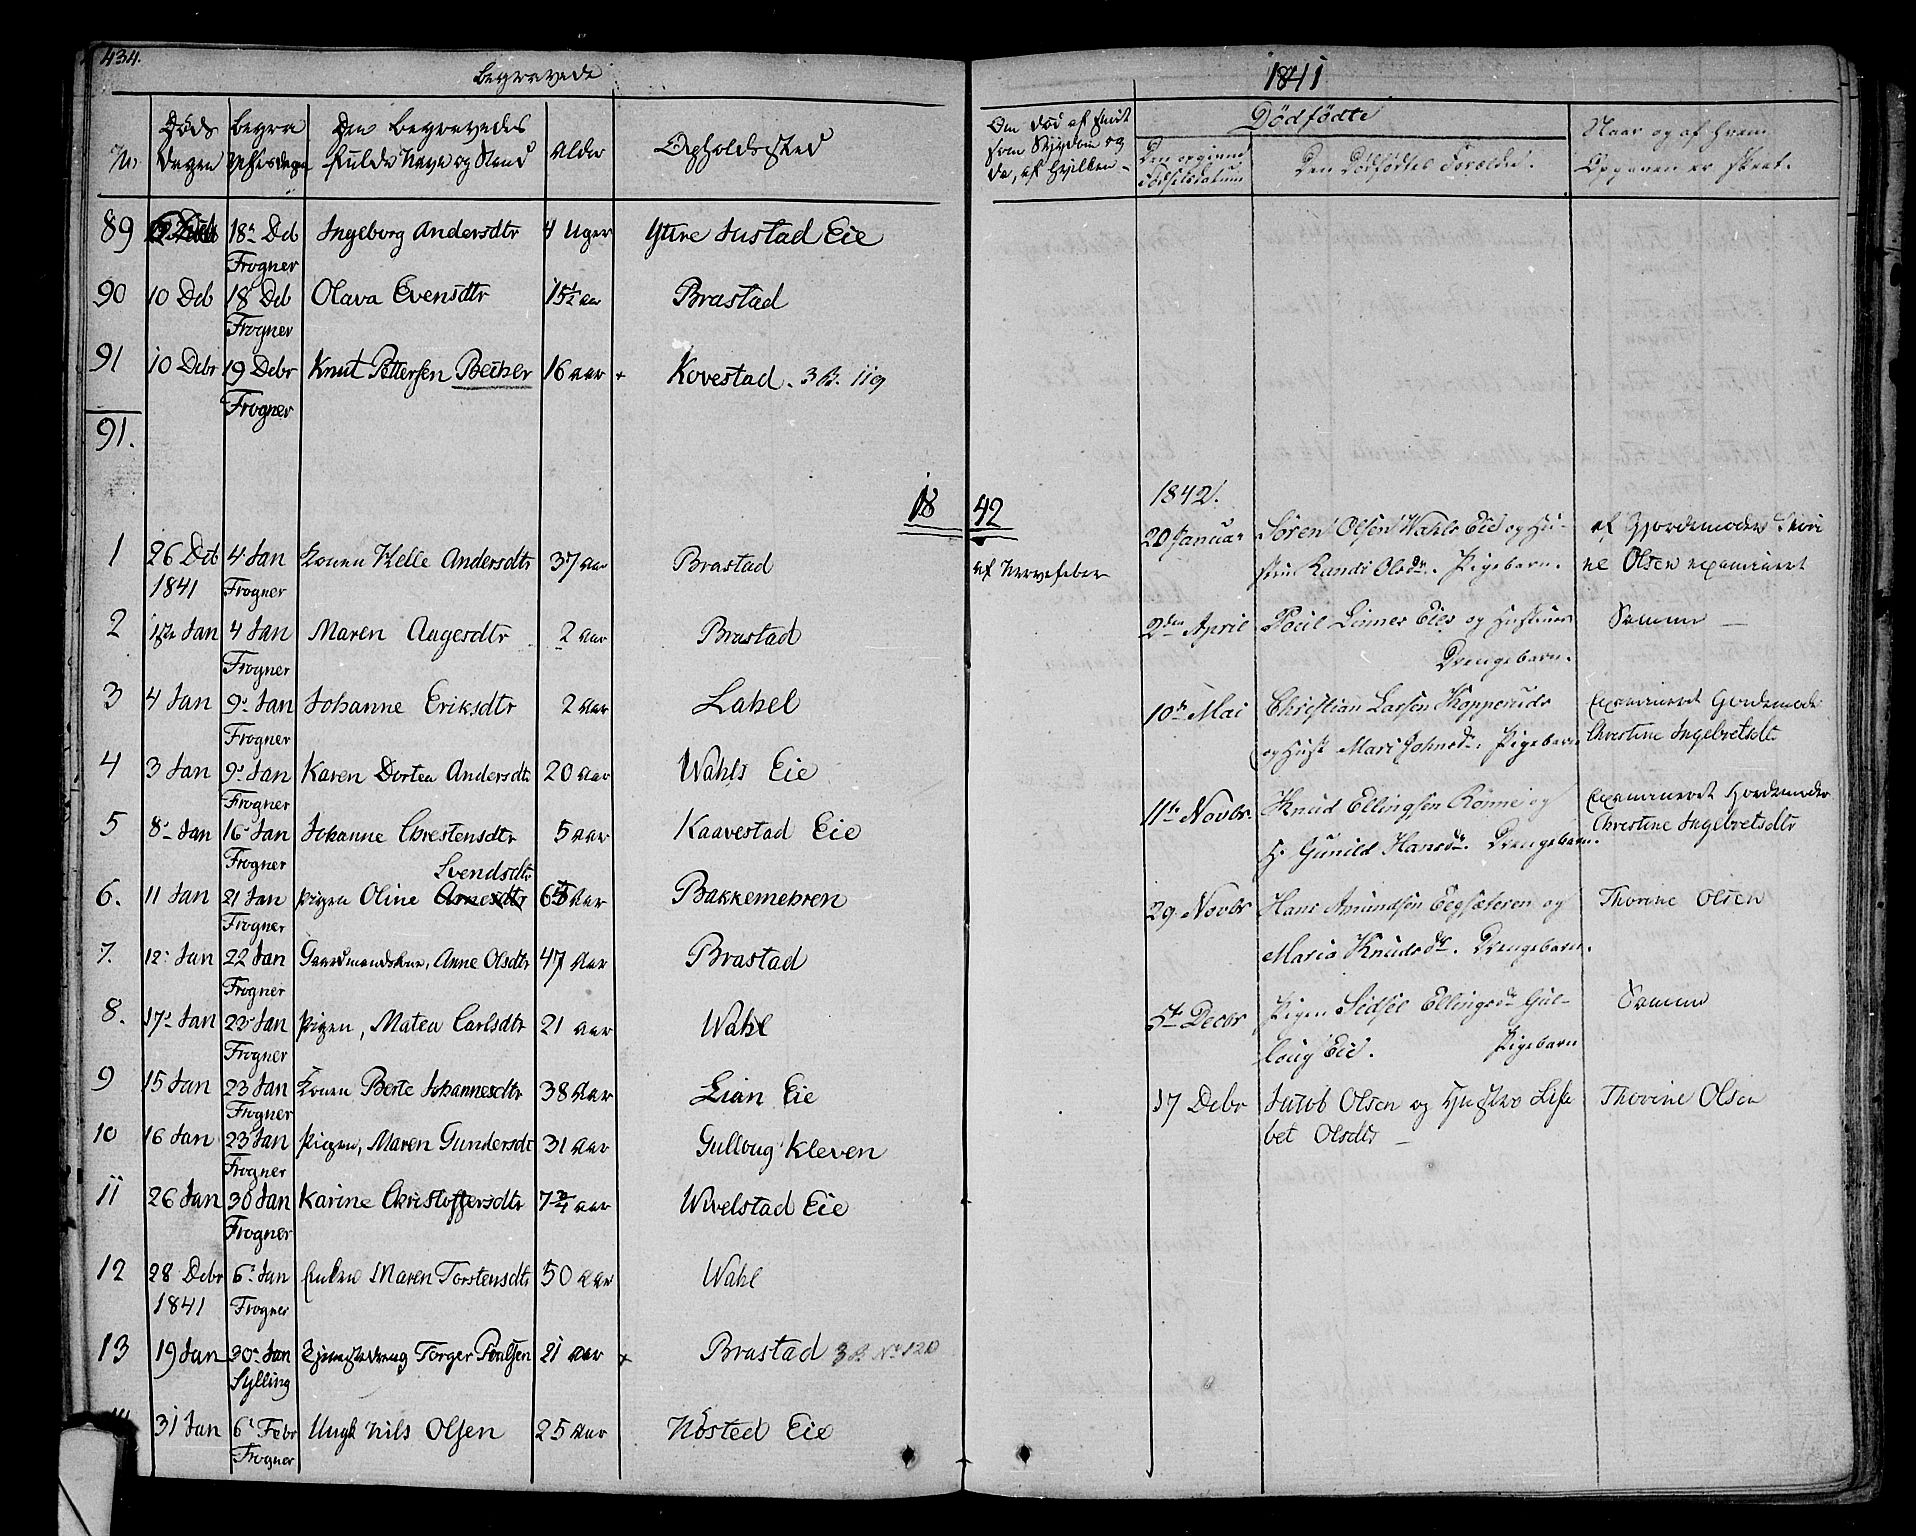 434.
Begravede
1841
No.
Døds
Dagen
Begra
velsesdagen
Den Begravedes
fulde Navn og Stand
Alder
Opholdssted
Den død af smit
som Sygdom og
da, af hvilken
Dødfødte
Den opgivne
Fødselsdatum
Den Dødfødtes Forældre.
Naar og af hvem
Opgaven er skeet.
89 18de Deb Ingeborg Andersdtr 4 Uger Ytre Justad Eie
Frogner
90 10 Deb 18 Deb Olava Evensdtr 15½ aar Brastad
Frogner
91 10 Debr 19 Debr Knut Pettersen Becher 16 aar + Kovestad. 3 B. 119
Frogner
91.
1842
1 26 Deb 4. Jan Konen Helle Andersdtr 37 aar Brastad af Nervefeber
1841 Frogner
2 Jan 4 Jan Maren Aagesdtr 2 aar Brastad
Frogner
3 4 Jan 9. Jan Johanne Eriksdtr 2 aar Lahel
Frogner
4 3 Jan 9. Jan Karen Dortea Andersdtr 20 aar Wahls Eie
Frogner
5 8. Jan 16. Jan Johanne Chrestensdtr 5 aar Kaavestad Eie
Frogner Svendsdtr
6. 11 Jan 21 Jan Pigen Oline Arnesdtr aar Bakkemehren
Frogner
7. 12. Jan 22 Jan Gaardmandskone, Anne Olsdtr 47 Aar Brastad
Frogner
8. 17. Jan 23. Jan Pigen, Matea Carlsdtr 21 aar Wahl
Frogner
9 15 Jan 23 Jan Konen Berte Johannesdtr 38 Aar Lian Eie
Frogner
10 16 Jan 23 Jan Pigen, Maren Gundersdt 31 Aar Gulloug Kleven
Frogner
11 26 Jan 30 Jan Karine Christoffersdtr 7¾ aar Wivelstad Eie
Frogner
12 28 Debr 6. Jan Enken Maren Torstensdtr 50 aar Wahl
1841 Frogner
13 19 Jan 30. Jan Tjenestedreng Torger Poulsen 21 aar + Brastad 3 B. No 120
Sylling
31 Jan 6. Febr Ungk Nils Olsen 25 aar Nøsted Eie
Frogner
1842.
20 Januar Søren Olsen Wahls Eie og Hu- af Gjordemoder Thori
stru Randi Olsdr. Pigebarn. ne Olsen examineret
2den April Poul Linnes Eies og Hustrues Samme
Drengebarn.
10de Mai Christian Larsen Kopperuds Examineret Gordemoder
og Hust Mari Johnsdr. Pigebarn Christine Ingebretsdtr
11te Novbr. Knud Ellingsen Rønne og Examineret Jordemoder
H. Gunild Hansdr. Drengebarn. Christine Ingebretsdtr
29. Novbr Hans Amundsen Eegsæteren og Thorine Olsen
Maria Knudsdr. Drengebarn.
5te Decbr Pigen Sidsel Ellingsdr Gul- Samme
loug Eie. Pigebarn
17 Debr Jacob Olsen og Hustro Lisa Thorine Olsen
bet Olsdtr